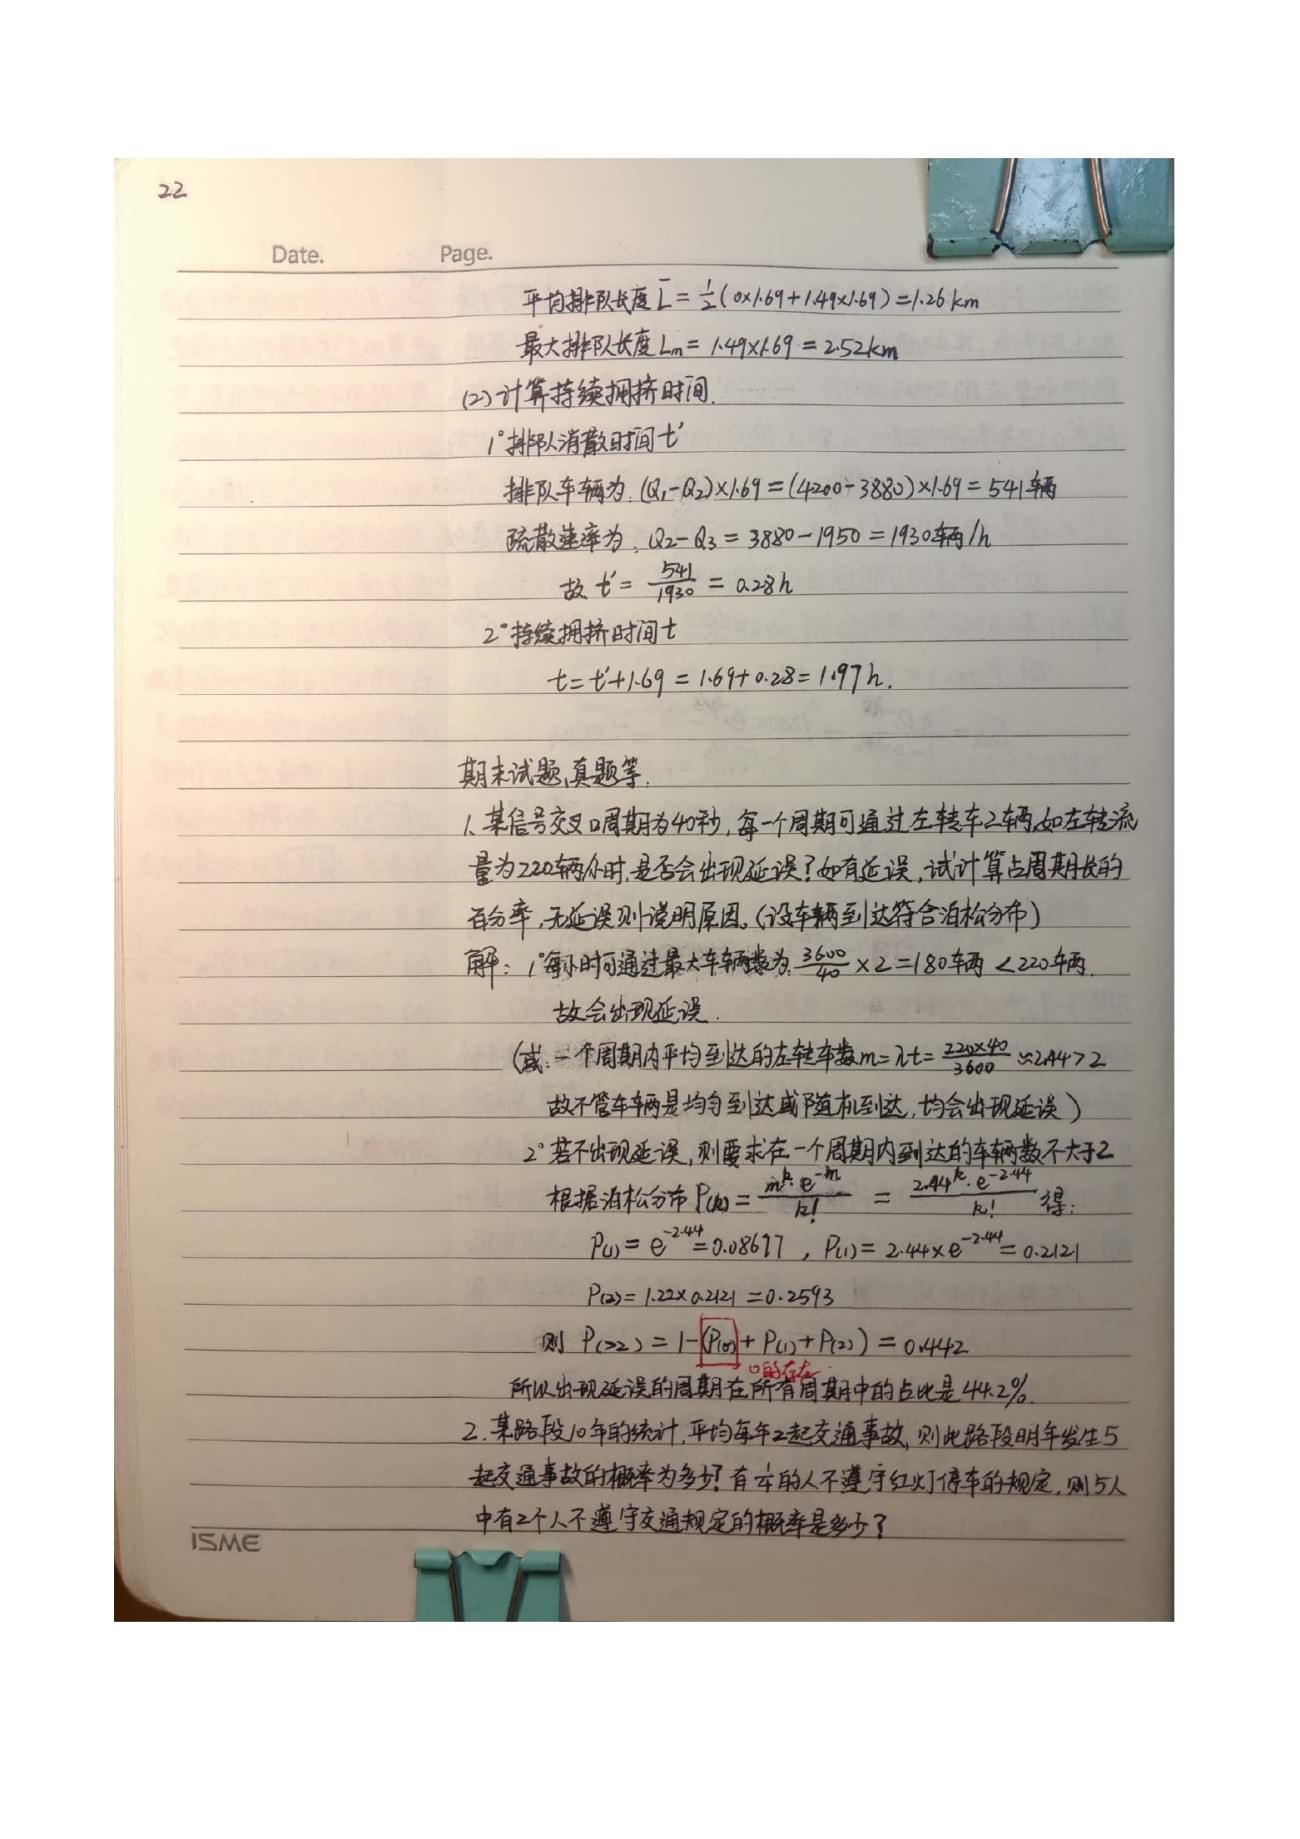 22
Date. Page.
平均排队长度 L̄ = 1/2 (0×1.69+1.49×1.69) = 1.26 km
最大排队长度 Lm = 1.49×1.69 = 2.52km
(2) 计算持续拥挤时间.
1° 排队消散时间 t'
排队车辆为: (Q1-Q2)×1.69 = (4200-3880)×1.69 = 541辆
疏散速率为: Q2-Q3 = 3880-1950 = 1930辆/h
故 t' = 541/1930 = 0.28h
2° 持续拥挤时间 t
t = t'+1.69 = 1.69+0.28 = 1.97h.
期末试题、真题等.
1、某信号交叉口周期为40秒, 每一个周期可通过左转车2辆,如左转流
量为220辆/小时,是否会出现延误?如有延误,试计算占周期长的
百分率,无延误则说明原因。(设车辆到达符合泊松分布)
解: 1° 每小时可通过最大车辆数为: 3600/40 ×2 = 180车辆 < 220车辆.
故会出现延误.
(或: 一个周期内平均到达的左转车数m = λt = 220×40/3600 ≈ 2.44 > 2
故不管车辆是均匀到达或随机到达, 均会出现延误)
2° 若不出现延误, 则要求在一个周期内到达的车辆数不大于2
根据泊松分布 P(k) = m^k·e^-m/k! = 2.44^k·e^-2.44/k! 得:
P(1) = e^-2.44 = 0.08697 , P(1) = 2.44×e^-2.44 = 0.2121
P(2) = 1.22×0.2121 = 0.2593
则 P(>2) = 1-(P(0)+P(1)+P(2)) = 0.442
0的存在.
所以出现延误的周期在所有周期中的占比是44.2%.
2. 某路段10年的统计, 平均每年2起交通事故, 则此路段明年发生5
起交通事故的概率为多少? 有的人不遵守红灯停车的规定, 则5人
中有2个人不遵守交通规定的概率是多少?
ISME